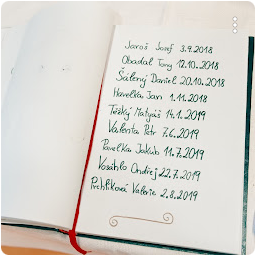 Jaroš Josef 3.9.2018
Obadal Tony 12.10.2018
Šálený Daniel 20.10.2018
Havelka Jan 1.11.2018
Těžký Matyáš 14.1.2019
Valenta Petr 7.6.2019
Pavelka Jakub 11.7.2019
Vosáhlo Ondřej 22.7.2019
Prchlíková Valerie 2.8.2019